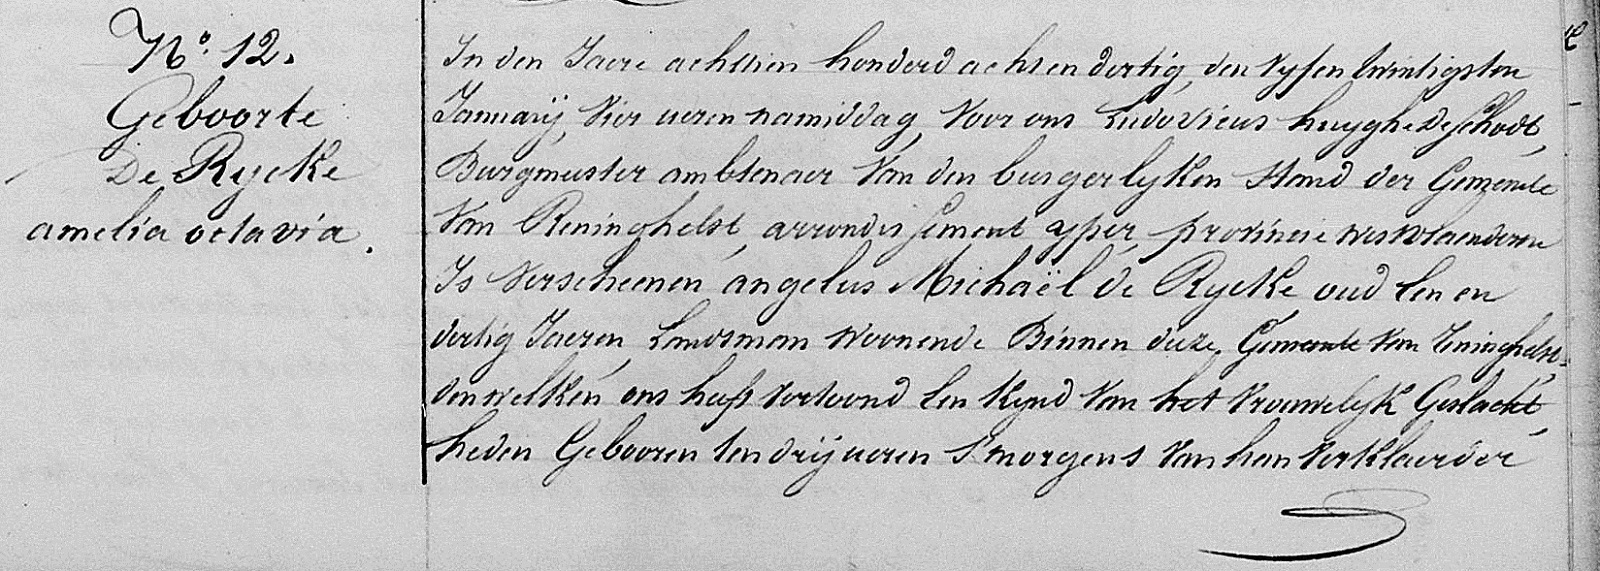 N.º 12.
Geboorte
De Rycke
amelia octavia.
In den Jaere achttien honderd achtendertig, den vyfentwintigsten
January, vier ueren namiddag, voor ons Ludovicus huyghe Deschodt,
Burgmeester ambtenaer van den burgerlyken stand der Gemeente
van Reninghelst, arrondissement yper, provincie westvlaenderen
Is verscheenen angelus Michaël de Rycke oud een en
dertig Jaeren, Landsman woonende Binnen deze Gemeente van Reninghelst,
denwelken ons heeft vertoond een kynd van het vrouwelyk Geslacht,
heden Gebooren ten dry ueren s'morgens van hem verklaerder